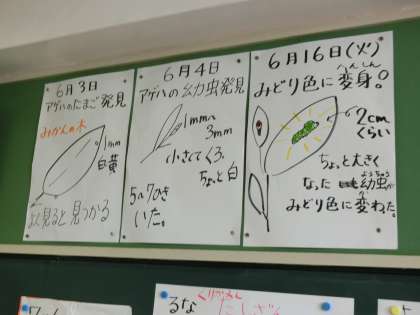 6月3日
アゲハのたまご発見
みかんの木
1mm
白黄
よく見ると見つかる
6月4日
アゲハの幼虫発見
1mm〜
3mm
小さくてくろ、
ちょっと白
5〜7ひき
いた。
6月16日(火)
へんしん
みどり色に変身。
2cm
くらい
ちょっと大きく
ようちゅう
なった幼虫が
みどり色に変わった。
くりかえし
るな